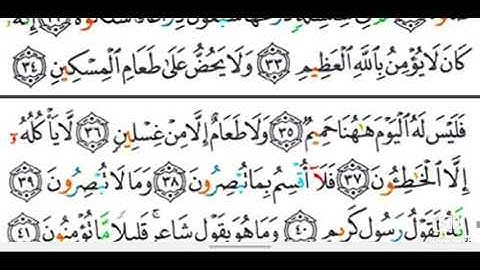 كَانَ لَا يُؤْمِنُ بِٱللَّهِ ٱلْعَظِيمِ ٣٣ وَلَا يَحُضُّ عَلَىٰ طَعَامِ ٱلْمِسْكِينِ ٣٤
فَلَيْسَ لَهُ ٱلْيَوْمَ هَٰهُنَا حَمِيمٌ ٣٥ وَلَا طَعَامٌ إِلَّا مِنْ غِسْلِينٍ ٣٦ لَّا يَأْكُلُهُۥٓ
إِلَّا ٱلْخَٰطِـُٔونَ ٣٧ فَلَآ أُقْسِمُ بِمَا تُبْصِرُونَ ٣٨ وَمَا لَا تُبْصِرُونَ ٣٩
إِنَّهُۥ لَقَوْلُ رَسُولٍ كَرِيمٍ ٤٠ وَمَا هُوَ بِقَوْلِ شَاعِرٍ ۚ قَلِيلًا مَّا تُؤْمِنُونَ ٤١